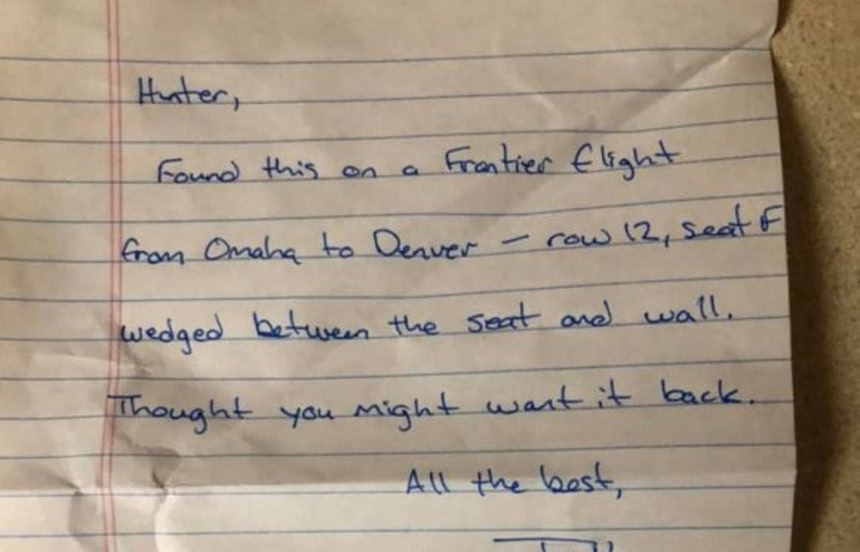 Hunter,
Found this on a Frontier flight
from Omaha to Denver – row 12, seat F
wedged between the seat and wall.
Thought you might want it back.
All the best,